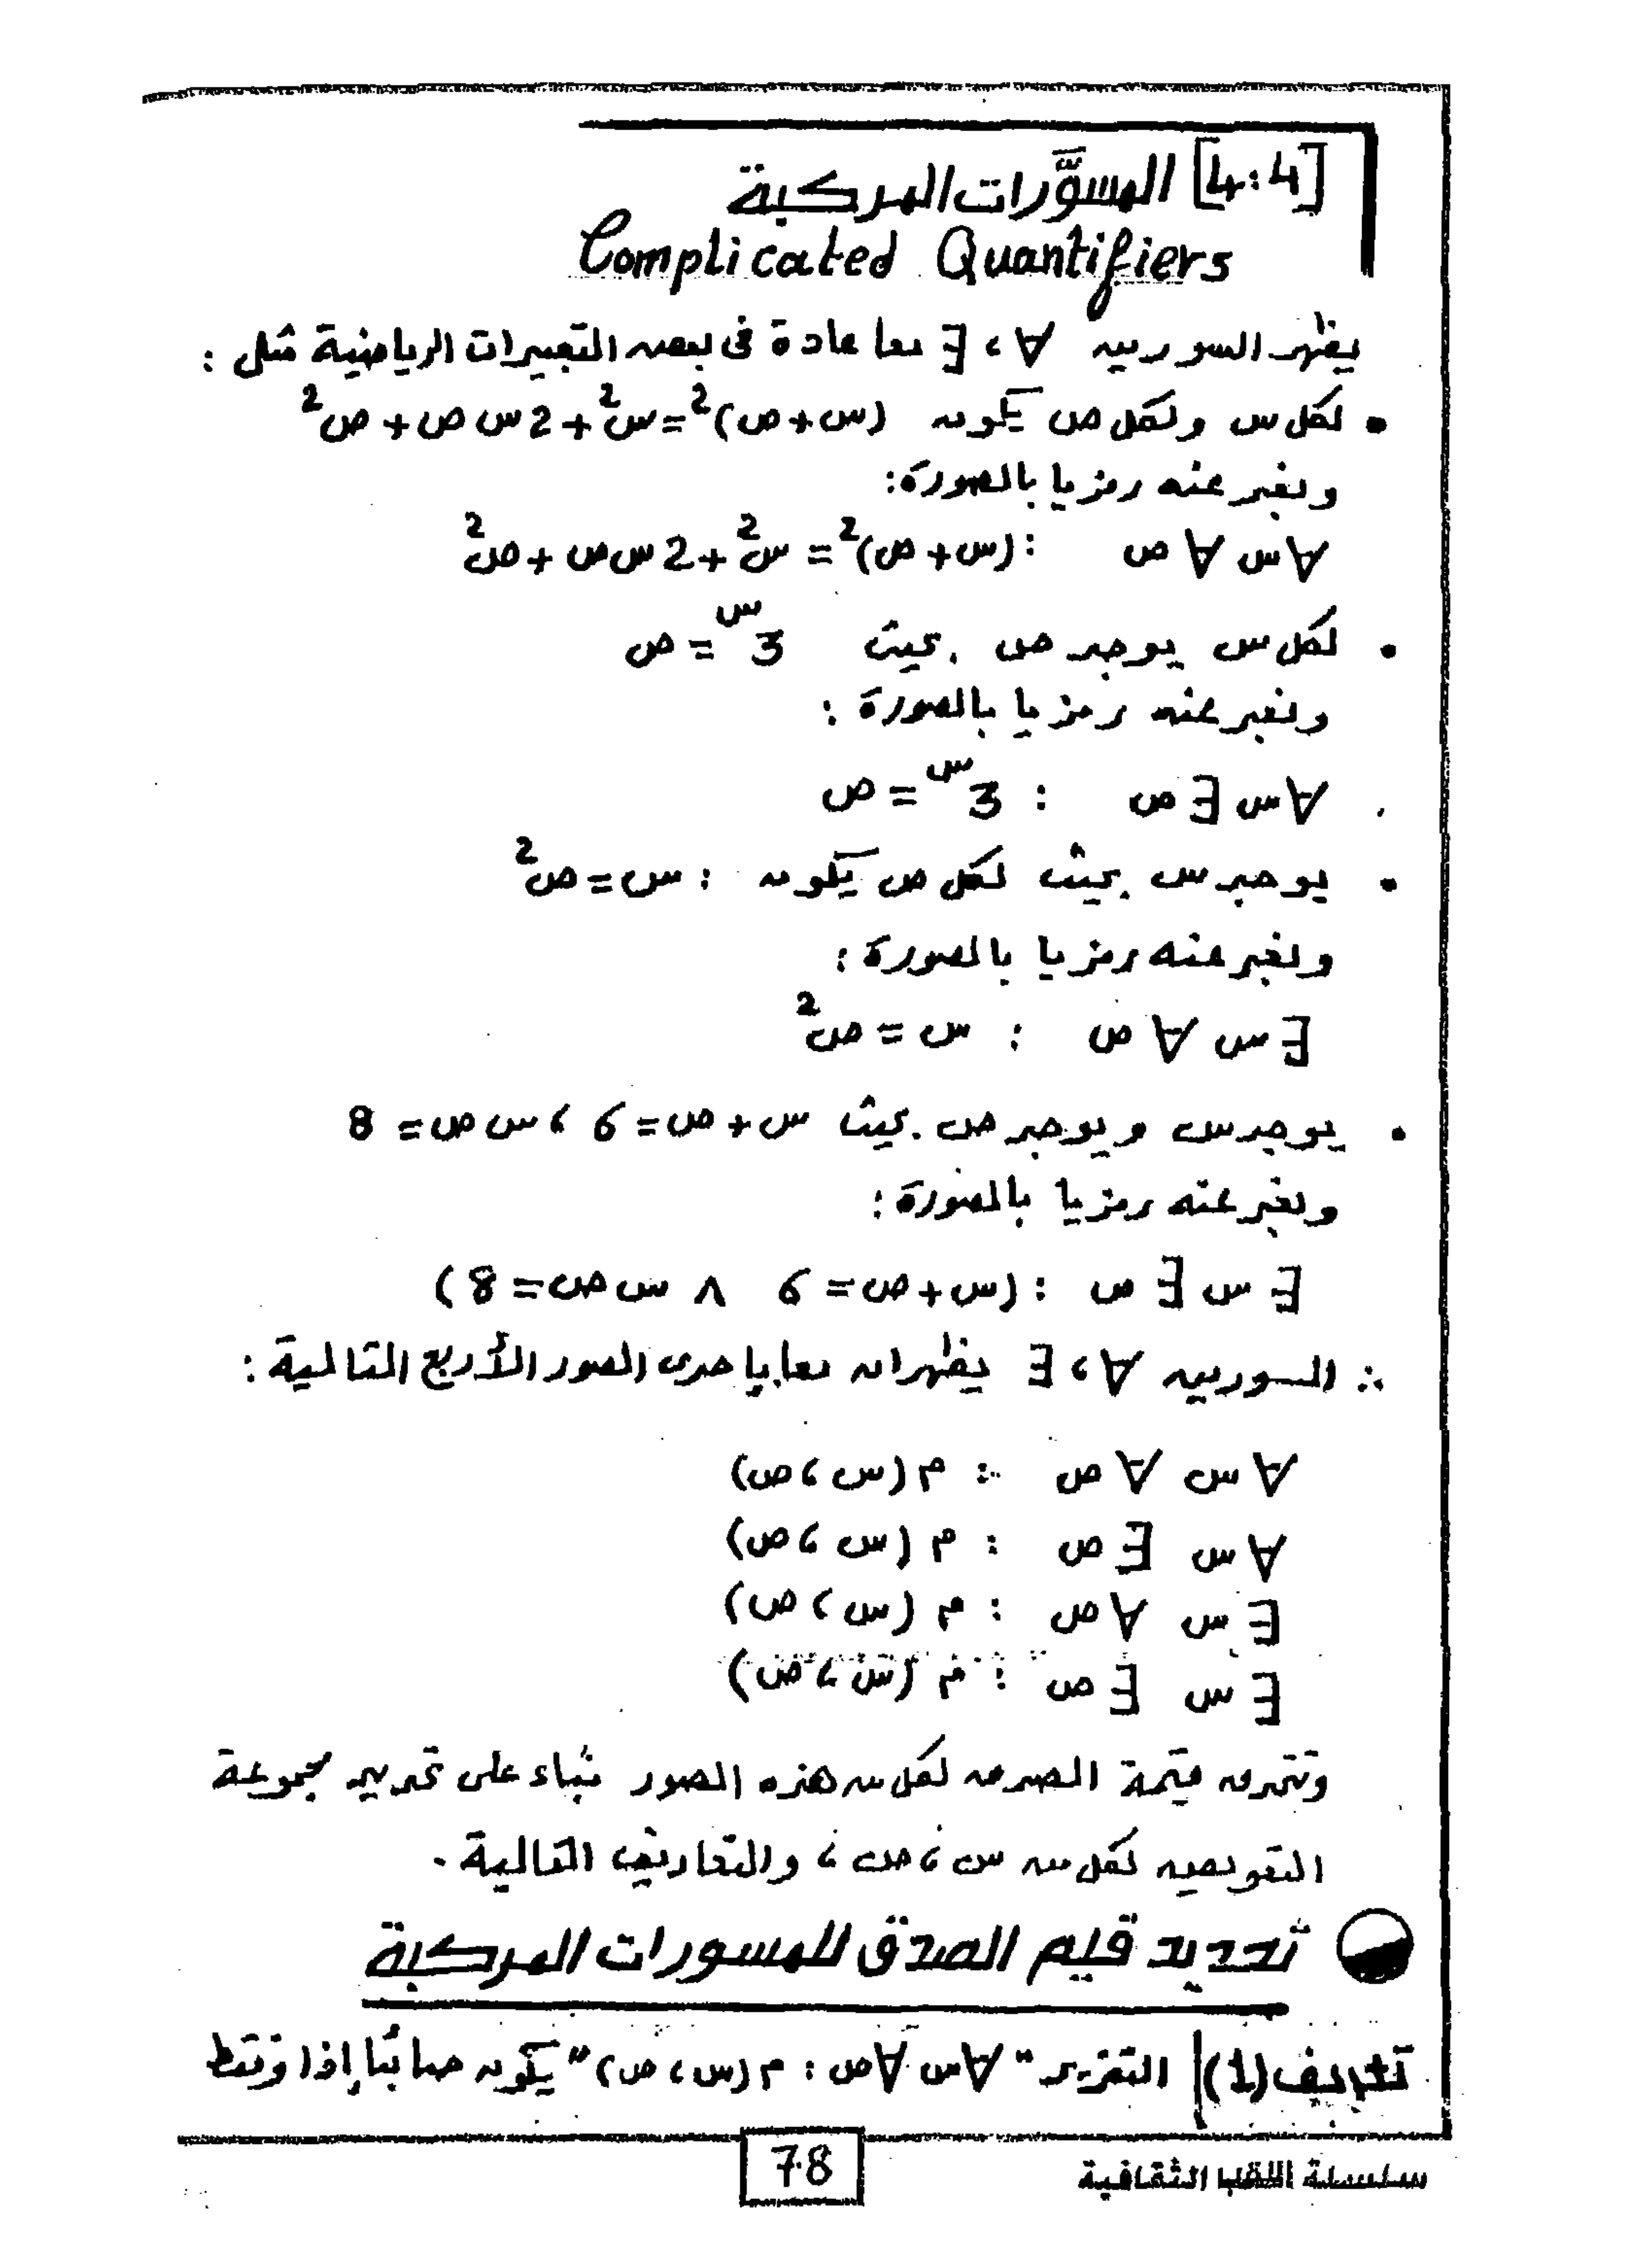 [4:4] المسوَّرات المركبة
Complicated Quantifiers
يظهر السورين ∀ ، ∃ معا عادة في بعض التعبيرات الرياضية مثل :
• لكل س ولكل ص يكون (س+ص)²=س²+2س ص+ص²
ونعبر عنه رمزيا بالصورة:
∀س ∀ ص : (س+ص)²= س²+2س ص+ص²
• لكل س يوجد ص بحيث 3^س = ص
ونعبر عنه رمزيا بالصورة :
∀س ∃ ص : 3^س = ص
• يوجد س بحيث لكل ص يكون : س=ص²
ونعبر عنه رمزيا بالصورة :
∃ س ∀ ص : س = ص²
• يوجد س ويوجد ص بحيث س+ص=6 ، س ص= 8
ونعبر عنه رمزيا بالصورة :
∃ س ∃ ص : (س+ص=6 ∧ س ص=8)
∴ السورين ∀ ، ∃ يظهران معا بإحدى الصور الأربع التالية :
∀ س ∀ ص : م (س ، ص)
∀ س ∃ ص : م (س ، ص)
∃ س ∀ ص : م (س ، ص)
∃ س ∃ ص : م (س ، ص)
قيمة الصدق لكل من هذه الصور بناء على تحديد مجموعة
التعويض لكل من س ، ص ، والتعاريف التالية .
تحديد قيم الصدق للمسورات المركبة
تعريف (1) التقرير "∀س ∀ص : م (س ، ص)" يكون صائبًا إذا وفقط
78
سلسلة الثقافية